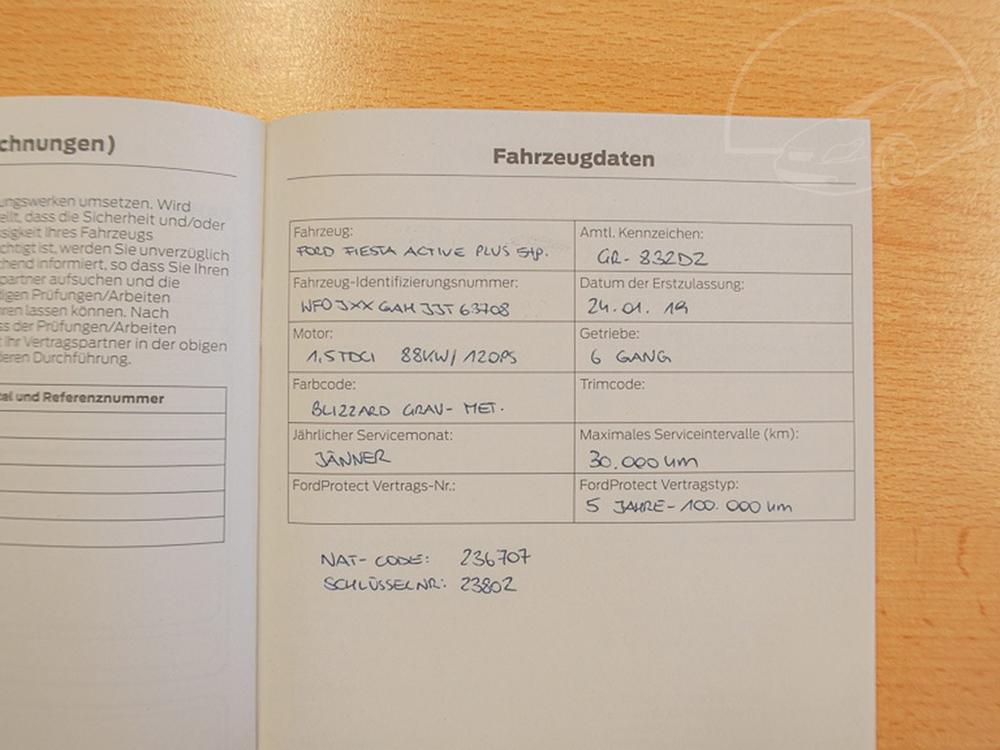 chnungen)
ungswerken umsetzen. Wird
ellt, dass die Sicherheit und/oder
ssigkeit Ihres Fahrzeugs
chtigt ist, werden Sie unverzüglich
chend informiert, so dass Sie Ihren
partner aufsuchen und die
digen Prüfungen/Arbeiten
ren lassen können. Nach
ss der Prüfungen/Arbeiten
t Ihr Vertragspartner in der obigen
deren Durchführung.
el und Referenznummer
Fahrzeugdaten
Fahrzeug:
FORD FIESTA ACTIVE PLUS 5tp.
Amtl. Kennzeichen:
GR-832DZ
Fahrzeug-Identifizierungsnummer:
WF0JXXGAHJJT63708
Datum der Erstzulassung:
24.01.19
Motor:
1,5TDCI 88KW/120PS
Getriebe:
6 GANG
Farbcode:
BLIZZARD GRAU-MET.
Trimcode:
Jährlicher Servicemonat:
JÄNNER
Maximales Serviceintervalle (km):
30.000 km
FordProtect Vertrags-Nr.:
FordProtect Vertragstyp:
5 JAHRE-100.000 km
NAT-CODE: 236707
SCHLÜSSELNR: 23802